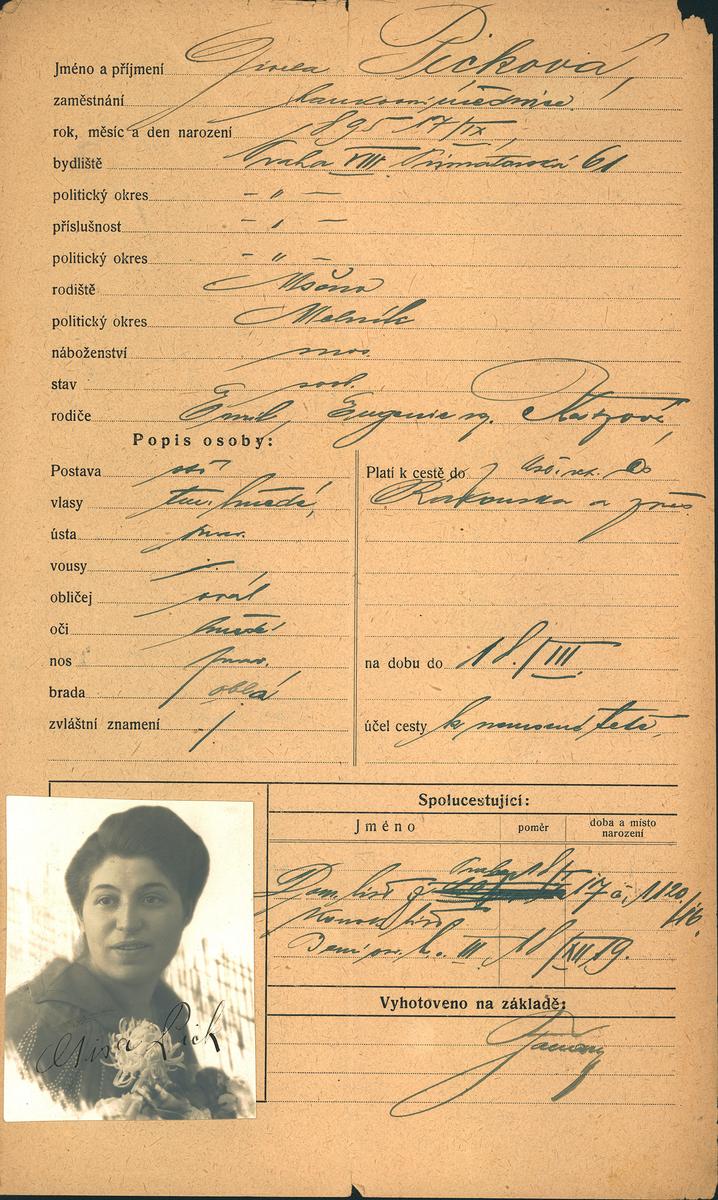 Jméno a příjmení Gisela Picková,
zaměstnání bankovní úřednice
rok, měsíc a den narození 1895 17/IX,
bydliště Praha VIII Primátorská 61
politický okres — " —
příslušnost — " —
politický okres — " —
rodiště Mšeno
politický okres Mělník
náboženství mos.
stav svob.
rodiče Emil, Eugenie
Popis osoby:
Postava stř.
vlasy tm. hnědé,
ústa prav.
vousy
obličej ovál
oči hnědé
nos prav.
brada oblá
zvláštní znamení /
Platí k cestě do
Rakouska a zpět
na dobu do 18./III.
účel cesty k nemocné tetě,
Spolucestující:
Jméno
poměr
doba a místo narození
Dom. list z Prahy 18/I 17 č.
Domov. list
III 18/XII 19.
Vyhotoveno na základě:
Gisa Pick